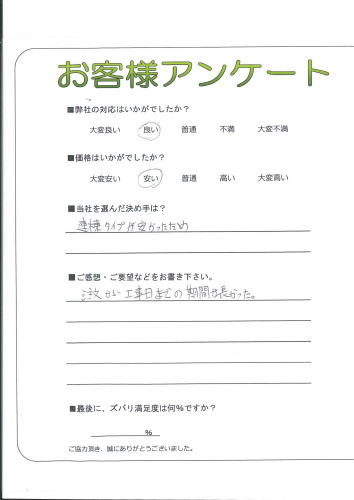 お客様アンケート
■弊社の対応はいかがでしたか?
大変良い 良い 普通 不満 大変不満
■価格はいかがでしたか?
大変安い 安い 普通 高い 大変高い
■当社を選んだ決め手は?
連棟タイプが安かったため
■ご感想・ご要望などをお書き下さい。
注文から工事日までの期間が長かった。
■最後に、ズバリ満足度は何%ですか?
%
ご協力頂き、誠にありがとうございました。